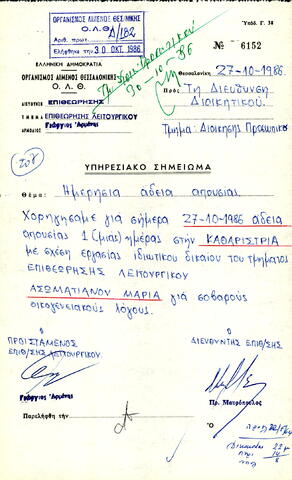 ΟΡΓΑΝΙΣΜΟΣ ΛΙΜΕΝΟΣ ΘΕΣ/ΝΙΚΗΣ
Ο.Λ.Θ.
Αριθ. πρωτ. Δ/182
Ελήφθη την 30 ΟΚΤ. 1986
30-10-86
Υπόδ. Γ. 34
№ 6152
ΕΛΛΗΝΙΚΗ ΔΗΜΟΚΡΑΤΙΑ
ΟΡΓΑΝΙΣΜΟΣ ΛΙΜΕΝΟΣ ΘΕΣΣΑΛΟΝΙΚΗΣ
Ο. Λ. Θ.
ΔΙΕΥΘΥΝΣΗ ΕΠΙΘΕΩΡΗΣΗΣ
ΤΜΗΜΑ ΕΠΙΘΕΩΡΗΣΗΣ ΛΕΙΤΟΥΡΓΙΚΟΥ
ΑΡΜΟΔΙΟΣ Γεώργιος
Θεσσαλονίκη 27-10-1986
Πρός Τη Διεύθυνση
Διοικητικού.
Τμήμα: Διοίκησης Προσωπικού
ΥΠΗΡΕΣΙΑΚΟ ΣΗΜΕΙΩΜΑ
Θέμα: Ημερήσια άδεια απουσίας.
Χορηγήσαμε γιά σήμερα 27-10-1986 άδεια
απουσίας 1 (μιας) ημέρας στήν ΚΑΘΑΡΙΣΤΡΙΑ
με σχέση εργασίας ιδιωτικού δικαίου του τμήματος
ΕΠΙΘΕΩΡΗΣΗΣ ΛΕΙΤΟΥΡΓΙΚΟΥ
ΑΣΩΜΑΤΙΑΝΟΥ ΜΑΡΙΑ γιά σοβαρούς
οικογενειακούς λόγους.
Ο
ΠΡΟΙΣΤΑΜΕΝΟΣ
ΕΠΙΘ/ΣΗΣ ΛΕΙΤΟΥΡΓΙΚΟΥ.
Γεώργιος
Ο
ΔΙΕΥΘΥΝΤΗΣ ΕΠΙΘ/ΣΗΣ
Πρ. Μαυρόπουλος
Παρελήφθη τήν
Ο